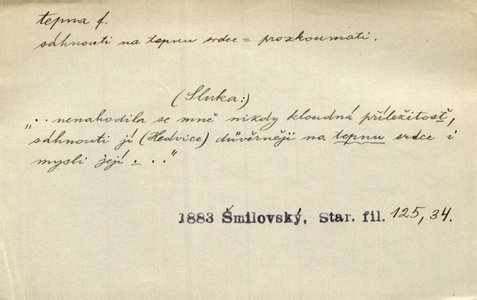 tepna f.
sáhnouti na tepnu srdce = prozkoumati.
(Sluka:)
„.. nenahodila se mně nikdy kloudná příležitosť,
sáhnouti jí (Hedvice) důvěrněji na tepnu srdce i
mysli její . . ."
1883 Šmilovský, Star. fil. 125, 34.